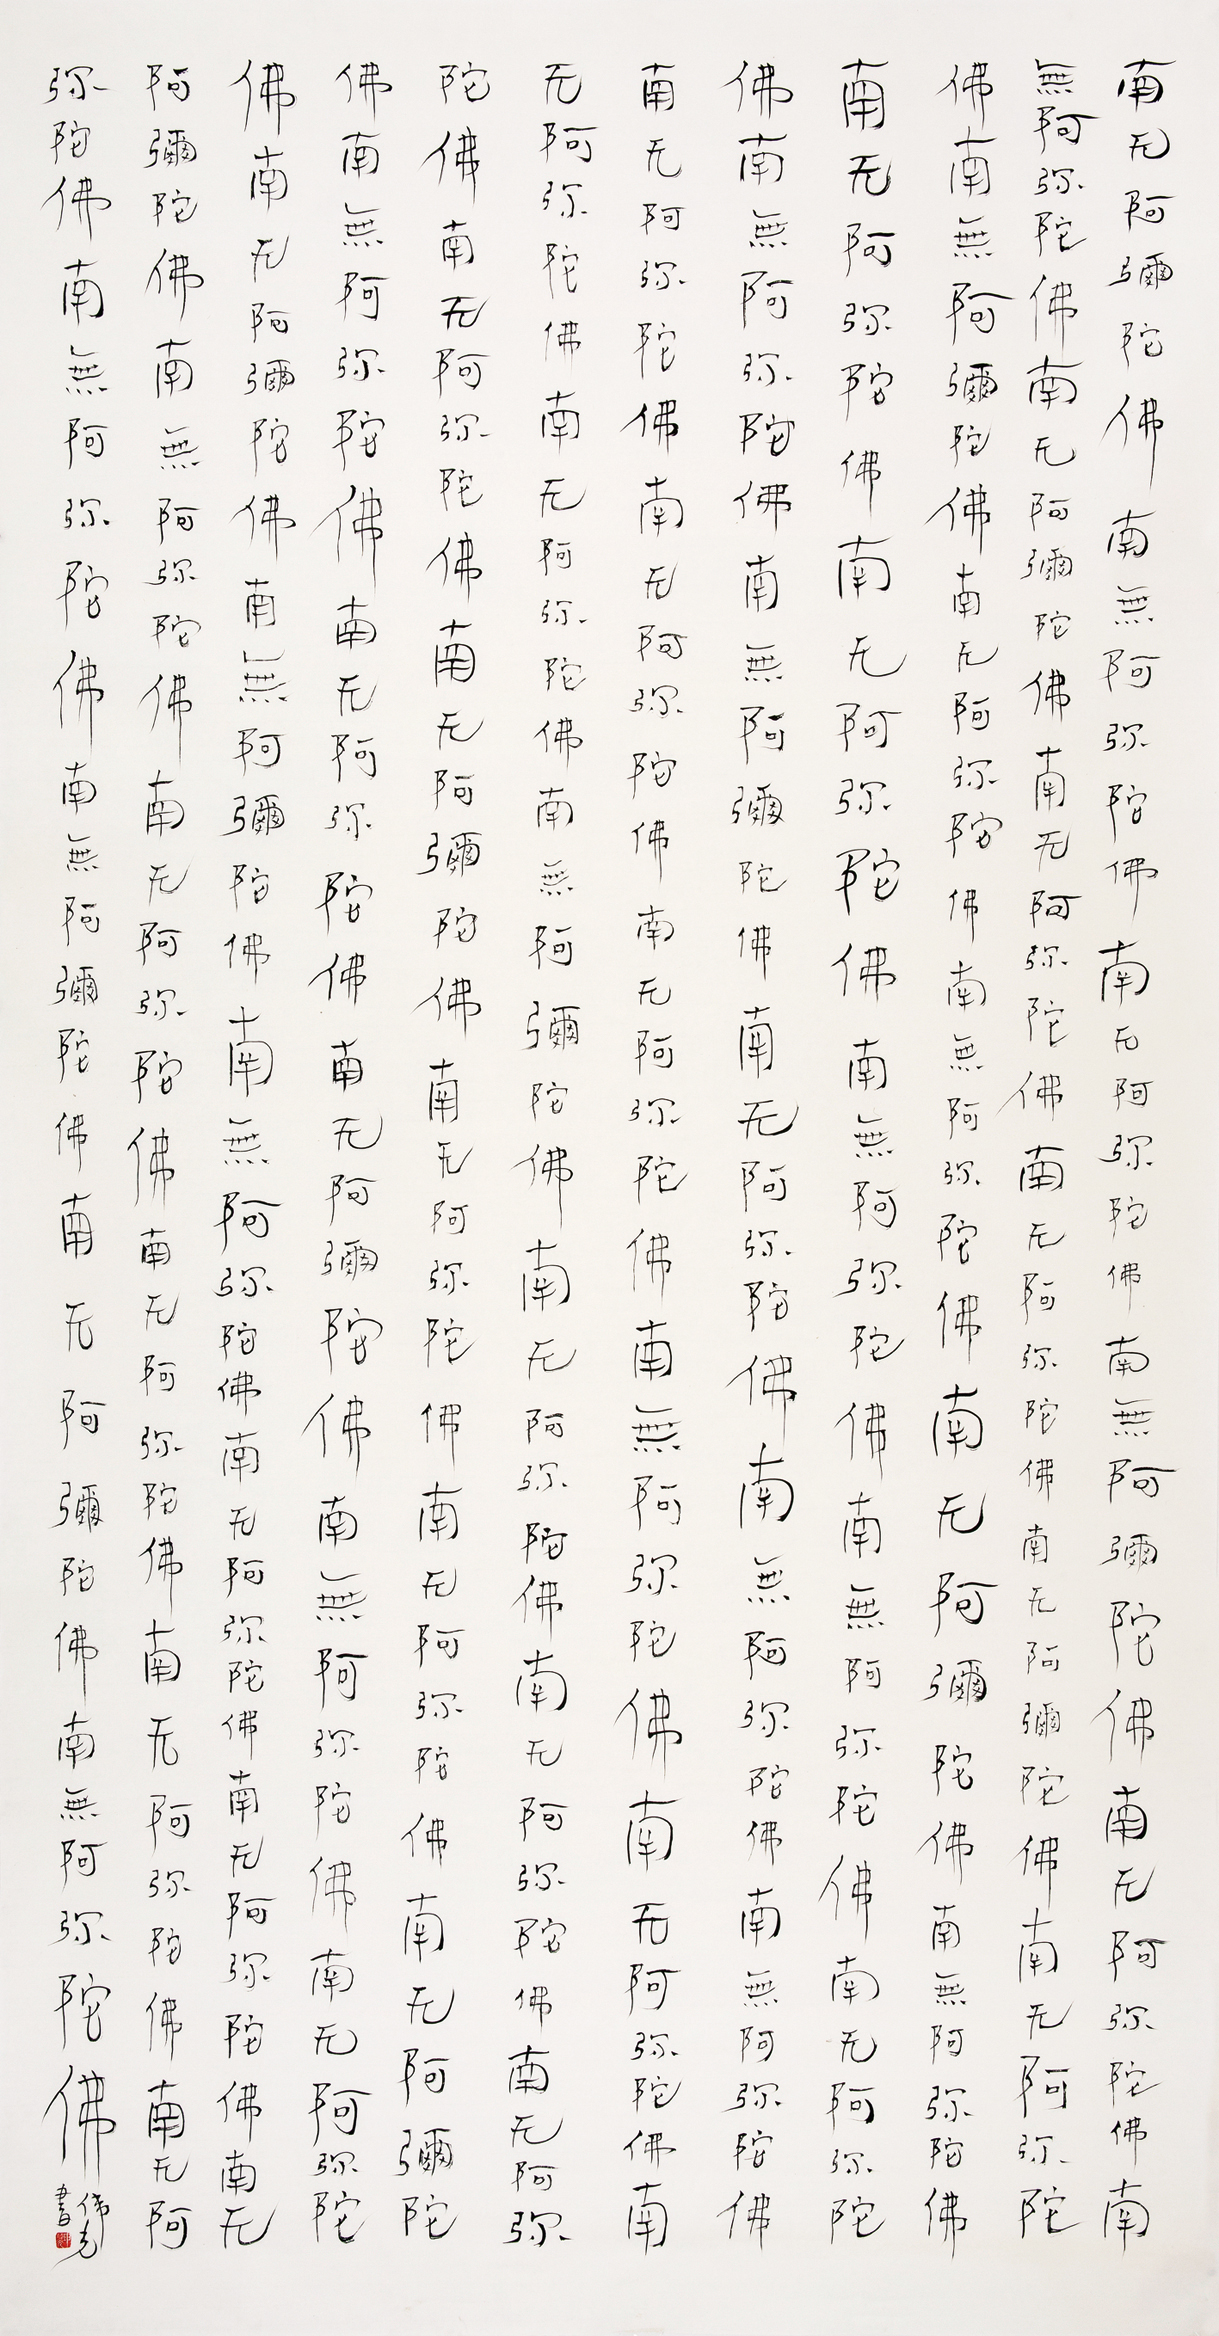 南无阿彌陀佛南無阿弥陀佛南无阿弥陀佛南無阿彌陀佛南无阿弥陀佛南
無阿弥陀佛南无阿彌陀佛南无阿弥陀佛南无阿弥陀佛南无阿彌陀佛南无阿弥陀
佛南無阿彌陀佛南无阿弥陀佛南無阿弥陀佛南无阿彌陀佛南無阿弥陀佛
南无阿弥陀佛南无阿弥陀佛南無阿弥陀佛南無阿弥陀佛南无阿弥陀
佛南無阿弥陀佛南無阿彌陀佛南无阿弥陀佛南無阿弥陀佛南無阿弥陀佛
南无阿弥陀佛南无阿弥陀佛南无阿弥陀佛南無阿弥陀佛南无阿弥陀佛南
无阿弥陀佛南无阿弥陀佛南無阿彌陀佛南无阿弥陀佛南无阿弥陀佛南无阿弥
陀佛南无阿弥陀佛南无阿彌陀佛南无阿弥陀佛南无阿弥陀佛南无阿彌陀
佛南無阿弥陀佛南无阿弥陀佛南无阿彌陀佛南無阿弥陀佛南无阿弥陀
佛南无阿彌陀佛南無阿彌陀佛南無阿弥陀佛南无阿弥陀佛南无阿弥陀佛南无
阿彌陀佛南無阿弥陀佛南无阿弥陀佛南无阿弥陀佛南无阿弥陀佛南无阿
弥陀佛南無阿弥陀佛南無阿彌陀佛南无阿彌陀佛南無阿弥陀佛
書